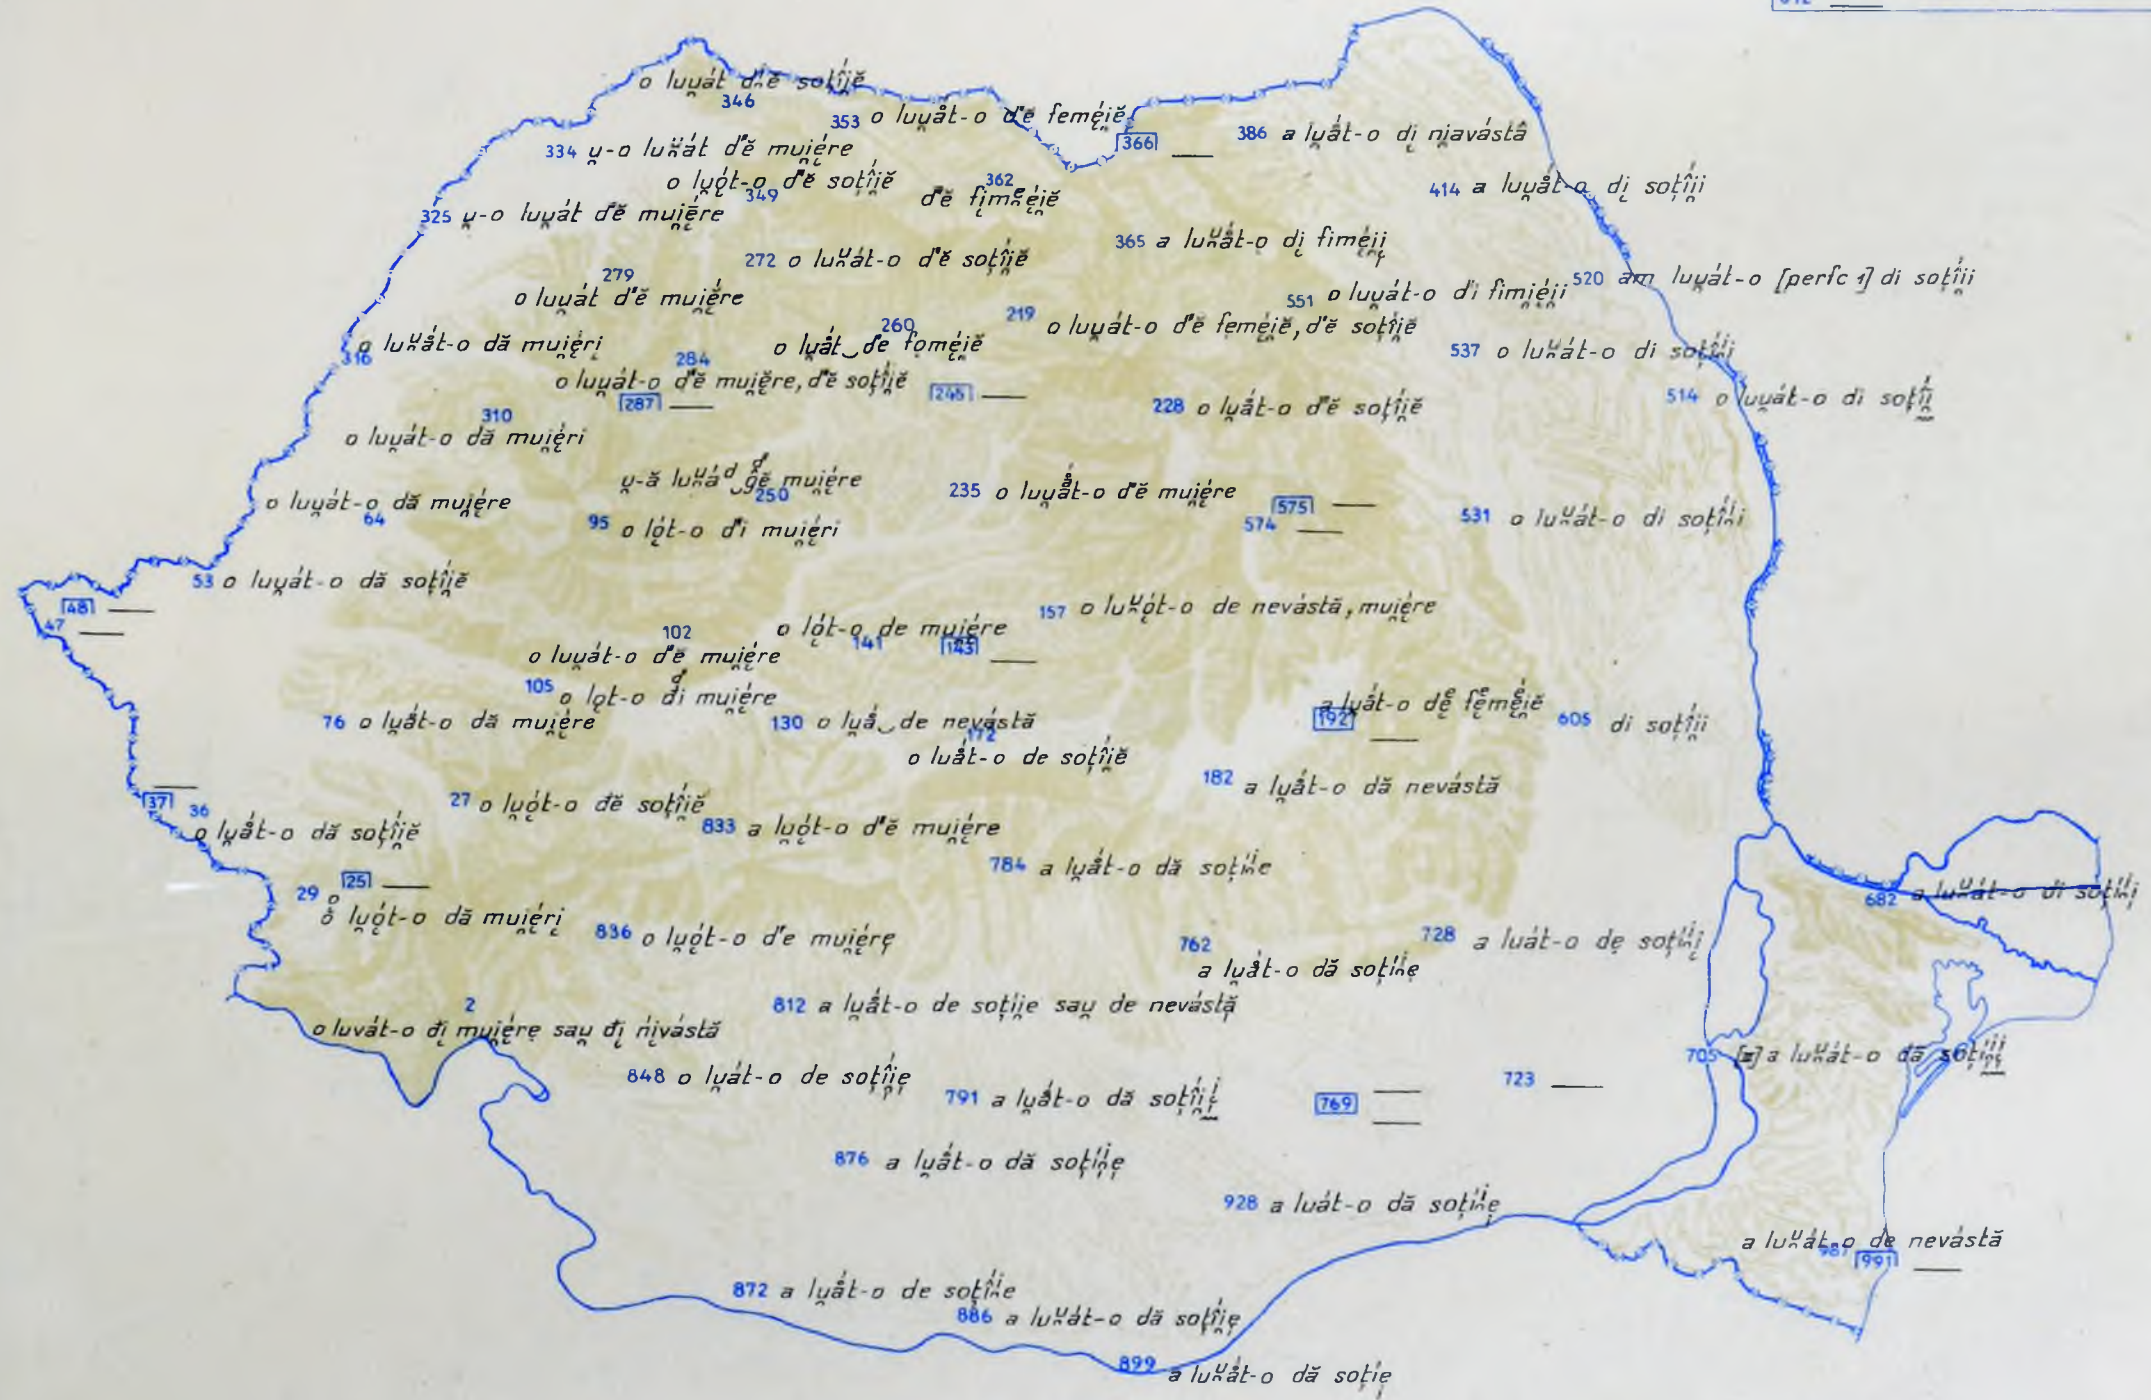 o luu̯át d'ĕ soțîi̯ĕ
346
353 o luu̯åt-o d'ĕ femė́i̯ĕ
366 —
386 a lu̯ǻt-o di̯ ni̯avástâ
334 u̯-o luᵘát d'ĕ mui̯ére
o lu̯ót-o d'ĕ soțîi̯ĕ
349
362
d'ĕ fimᵉéi̯ĕ
414 a luu̯ǻt-o di̯ soțîi̯i
325 u̯-o luu̯át d'ĕ mui̯ēre
365 a luᵘǻt-o di̯ fiméi̯i̯
272 o luᵘát-o d'ĕ soțîi̯ĕ
279
o luu̯át d'ĕ mui̯ĕ́re
520 am luu̯át-o [perfc 1] di soțîi̯i
551 o luu̯át-o d'i fimi̯éi̯i
219 o luu̯át-o d'ĕ femėi̯ĕ, d'ĕ soțîi̯ĕ
260
o lu̯ǻt‿de foméi̯ĕ
316 o luᵘǻt-o dă mui̯éri
537 o luᵘát-o di soțîi̯i
284
o luu̯át-o d'ĕ mui̯ĕ́re, d'ĕ soțîi̯ĕ
287 —
—
228 o lu̯ǻt-o d'ĕ soțîi̯ĕ
514 o luu̯át-o di soțîi̯
310
o luu̯át-o dă mui̯éri
u̯-ă luᵘáᵈ‿ĕ mui̯ére
250
235 o luu̯ǻt-o d'ĕ mui̯ére
575 —
574 —
531 o luᵘát-o di soțîi̯i
o luu̯át-o dă mui̯ére
64
95 o lót-o d'i mui̯éri
53 o luu̯át-o dă soțîi̯ĕ
48 —
47 —
157 o luᵘót-o de nevástă, mui̯ére
o lót-o de mui̯ére
141
143 —
102
o luu̯át-o d'ĕ mui̯ére
105 o lo̯t-o di mui̯ére
76 o lu̯ǻt-o dă mui̯ére
130 o lu̯ǻ‿de nevástă
172
o luǻt-o de soțîi̯ĕ
a lu̯át-o dᵉe fᵉemᵉéi̯ĕ
192 —
605 di soțîi̯i
182 a lu̯ǻt-o dă nevástă
37 —
36
o lu̯ǻt-o dă soțîi̯ĕ
27 o lu̯ót-o dĕ soțîi̯ĕ
833 a lu̯ót-o d'ĕ mui̯ére
784 a lu̯ǻt-o dă soțíⁱe
25 —
29
o lu̯ót-o dă mui̯éri̯
682 a luᵘát-o di soțíⁱi̯
836 o lu̯ót-o d'e mui̯ére̯
762
a lu̯ǻt-o dă soțíⁱe̯
728 a luát-o de̯ soțíⁱi̯
2
o luvát-o di̯ mui̯ére̯ sau̯ di̯ ńivástă
812 a lu̯ǻt-o de soțîi̯e sau̯ de nevástă̯
705 [≡] a luᵘát-o dă soțíⁱi̯
848 o lu̯át-o de soțîi̯e̯
791 a lu̯ǻt-o dă soțîi̯i̯
769 —
—
723 —
876 a lu̯ǻt-o dă soțíⁱe̯
928 a luát-o dă soțíⁱe̯
a luᵘát-o de nevástă
987
991 —
872 a lu̯ǻt-o de soțîⁱe
886 a luᵘát-o dă soțîi̯e̯
899 a luᵘǻt-o dă soțíe̯